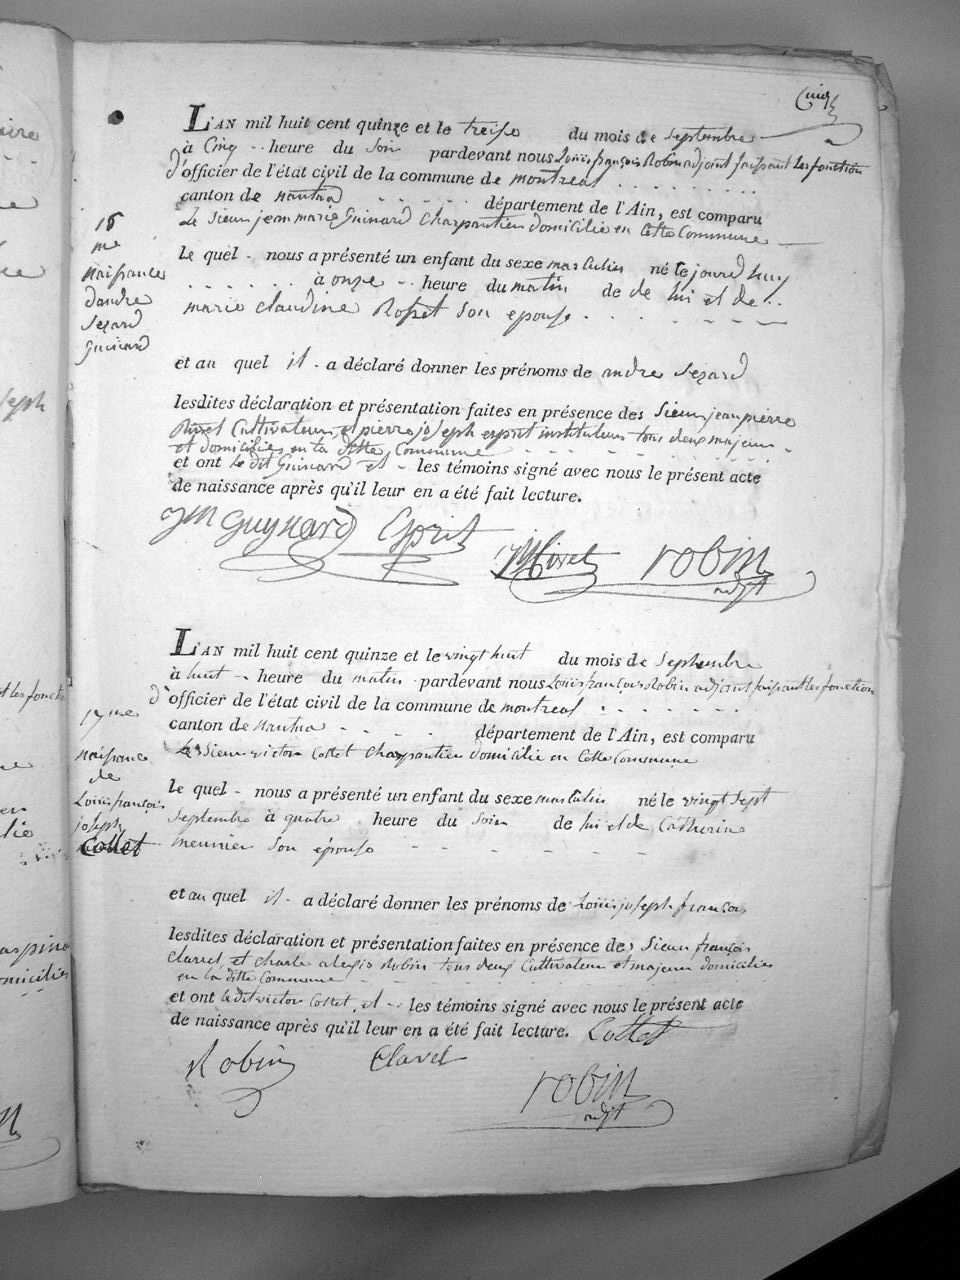 Cinq
L'AN mil huit cent quinze et le treise du mois de septembre
à Cinq heure du soir pardevant nous Louis françois Robin adjoint faisant les fonction
d'officier de l'état civil de la commune de montreal
canton de nantua département de l'Ain, est comparu
Le Sieur jean marie Guinard Charpantier domicilié en Cette Commune
16
me
naissance
dandre
Sezard
Guinard
le quel nous a présenté un enfant du sexe masculin né le jourd huy
à onze heure du matin de de lui et de
marie claudine Rosset Son epouse
et au quel il a déclaré donner les prénoms de andre Sezard
lesdites déclaration et présentation faites en présence des Sieur jean pierre
Cultivateur, et pierre joseph esprit instituteur tous deux majeur
et domiciliés en la ditte Commune
et ont le dit Guinard et les témoins signé avec nous le présent acte
de naissance après qu'il leur en a été fait lecture.
JM Guynard Esprit
robin
adjt
L'AN mil huit cent quinze et le vingt huit du mois de Septembre
à huit heure du matin pardevant nous Louis françois Robin adjoint faisant les fonction
d'officier de l'état civil de la commune de montreal
canton de Nantua département de l'Ain, est comparu
Le Sieur victor Collet Charpantier domicilié en Cette Commune
17 me
naissance
de
Louis françois
joseph
Collet
le quel nous a présenté un enfant du sexe masculin né le vingt Sept
Septembre à quatre heure du Soir de lui et de Catherine
meunier Son épouse
et au quel il a déclaré donner les prénoms de Louis joseph françois
lesdites déclaration et présentation faites en présence des Sieur françois
Clavel, et Charle alexis Robin tous deux Cultivateur et majeur domiciliés
en la ditte Commune
et ont le dit victor Collet, et les témoins signé avec nous le présent acte
de naissance après qu'il leur en a été fait lecture. Collet
Robin Clavel
robin
adjt